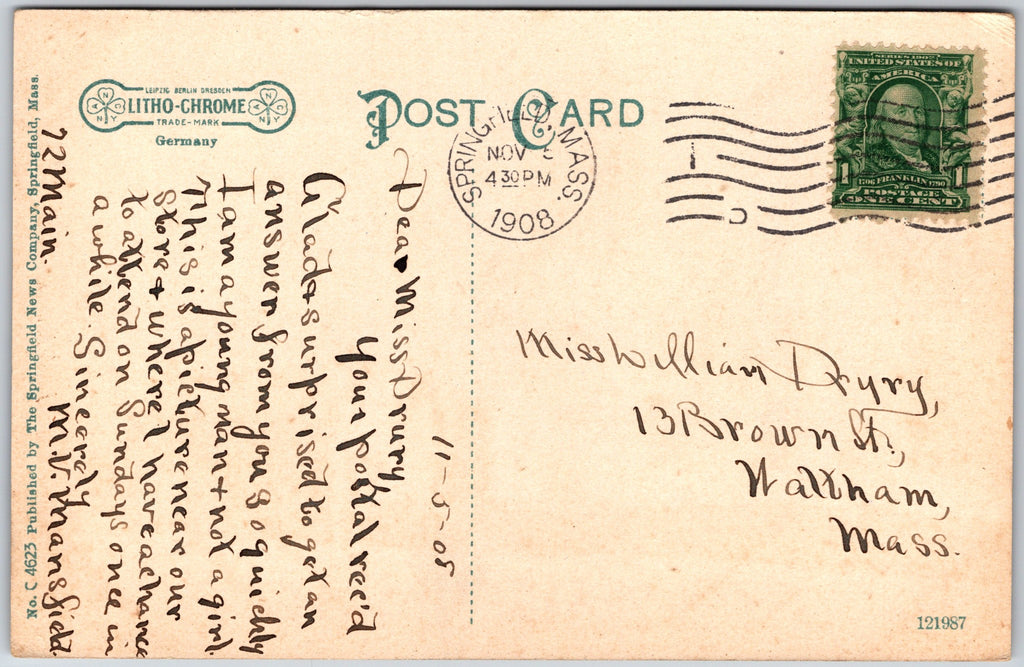 LEIPZIG BERLIN DRESDEN
LITHO-CHROME
TRADE-MARK
Germany
POST CARD
SPRINGFIELD, MASS.
NOV 5
4 30 PM
1908
SERIES 1902
UNITED STATES OF
AMERICA
1706 FRANKLIN 1790
1 POSTAGE 1
ONE CENT
Miss William Drury,
13 Brown St.,
Waltham,
Mass.
121987
11-5-08
Dear Miss Drury
Your postal rec'd
Glad + surprised to get an
answer from you so quickly
I am a young man + not a girl.
This is a picture near our
store + where I have a chance
to attend on Sundays once in
a while. Sincerely
M.V. Mansfield
72 Main
No. C 4623 Published by The Springfield News Company, Springfield, Mass.